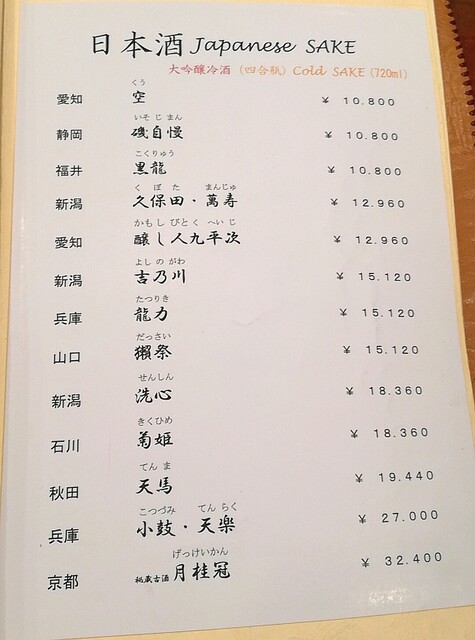 日本酒 Japanese SAKE
大吟醸冷酒 (四合瓶) Cold SAKE (720ml)
くう
愛知 空 ¥ 10.800
いそ じ まん
静岡 磯自慢 ¥ 10.800
こくりゅう
福井 黒龍 ¥ 10.800
く ぼ た まんじゅ
新潟 久保田・萬寿 ¥ 12.960
かもし びとく へいじ
愛知 醸し人九平次 ¥ 12.960
よし の がわ
新潟 吉乃川 ¥ 15.120
たつりき
兵庫 龍力 ¥ 15.120
だっさい
山口 獺祭 ¥ 15.120
せんしん
新潟 洗心 ¥ 18.360
きくひめ
石川 菊姫 ¥ 18.360
てん ま
秋田 天馬 ¥ 19.440
こつづみ てん らく
兵庫 小鼓・天楽 ¥ 27.000
げっけいかん
京都 秘蔵古酒 月桂冠 ¥ 32.400